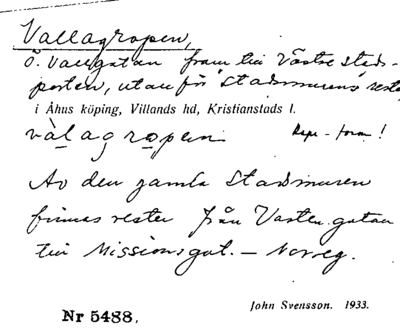 Vallagropen,
Ö. Vallgatan fram till Västra stads-
porten, utanför Stadsmurens rester
i Åhus köping, Villands hd, Kristianstads l.
vàlagropen Repr-form!
Av den gamla Stadsmuren
finnas rester från Väster gatan
till Missionsgat. – Norreg.
John Svensson. 1933.
Nr 5488.